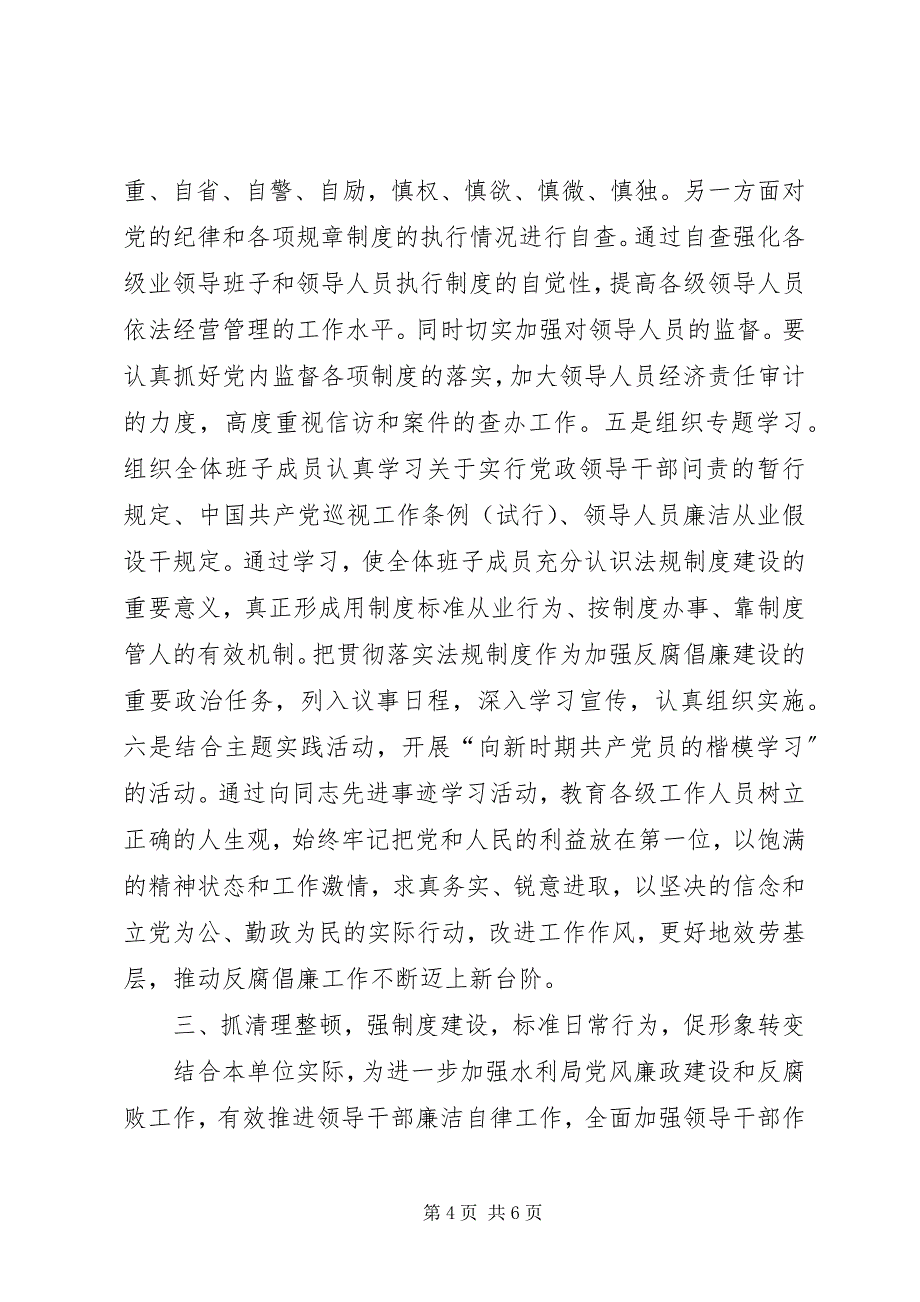 重、自省、自警、自励，慎权、慎欲、慎微、慎独。另一方面对
党的纪律和各项规章制度的执行情况进行自查。通过自查强化各
级业领导班子和领导人员执行制度的自觉性，提高各级领导人员
依法经营管理的工作水平。同时切实加强对领导人员的监督。要
认真抓好党内监督各项制度的落实，加大领导人员经济责任审计
的力度，高度重视信访和案件的查办工作。五是组织专题学习。
组织全体班子成员认真学习关于实行党政领导干部问责的暂行
规定、中国共产党巡视工作条例（试行）、领导人员廉洁从业假
设干规定。通过学习，使全体班子成员充分认识法规制度建设的
重要意义，真正形成用制度标准从业行为、按制度办事、靠制度
管人的有效机制。把贯彻落实法规制度作为加强反腐倡廉建设的
重要政治任务，列入议事日程，深入学习宣传，认真组织实施。
六是结合主题实践活动，开展“向新时期共产党员的楷模学习"
的活动。通过向同志先进事迹学习活动，教育各级工作人员树立
正确的人生观，始终牢记把党和人民的利益放在第一位，以饱满
的精神状态和工作激情，求真务实、锐意进取，以坚决的信念和
立党为公、勤政为民的实际行动，改进工作作风，更好地效劳基
层，推动反腐倡廉工作不断迈上新台阶。
三、抓清理整顿，强制度建设，标准日常行为，促形象转变
结合本单位实际，为进一步加强水利局党风廉政建设和反腐
败工作，有效推进领导干部廉洁自律工作，全面加强领导干部作
第 4 页 共 6 页